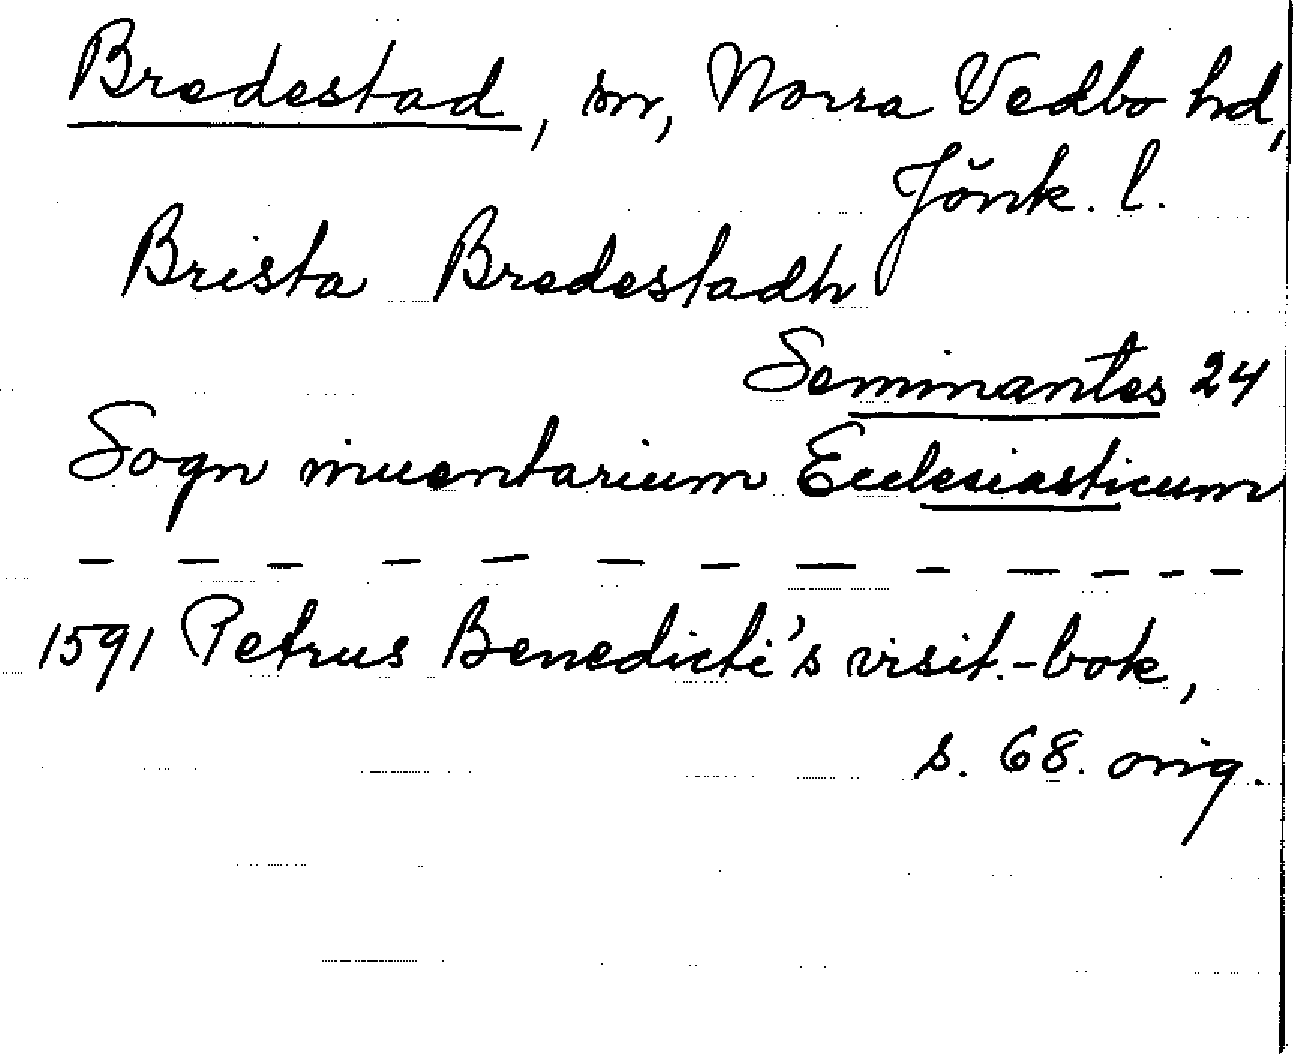 Bredestad, sn, Norra Vedbo hd,
Jönk. l.
Brista Bredestadh
Seminantes 24
Sogn inuentarium Ecclesiasticum
— — — — — — — — — — — — —
1591 Petrus Benedicti's visit.-bok,
s. 68. orig.